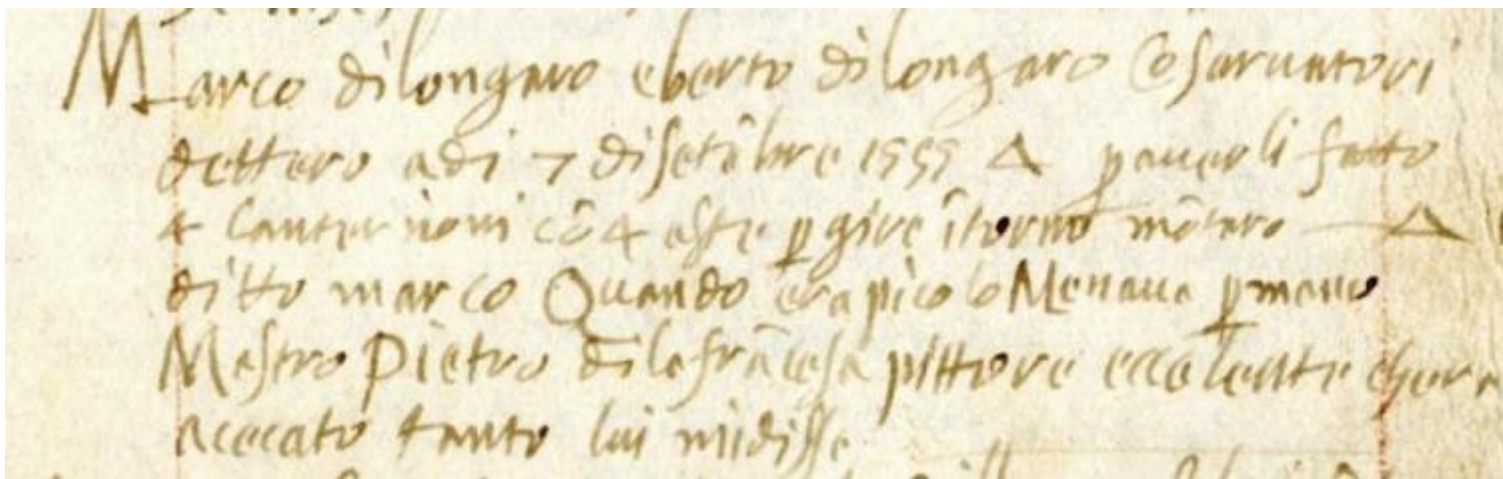 Marco di longaro e berto di longaro Cōservatori
dettero adi 7 di setēbre 1555 Δ p averli fatto
4 lanternioni cō 4 aste p gire ītorno mōtaro Δ
ditto marco Quando era picolo Menava p mano
Mestro Pietro di la frācesca pittore eccelente che era
acecato tanto lui mi disse